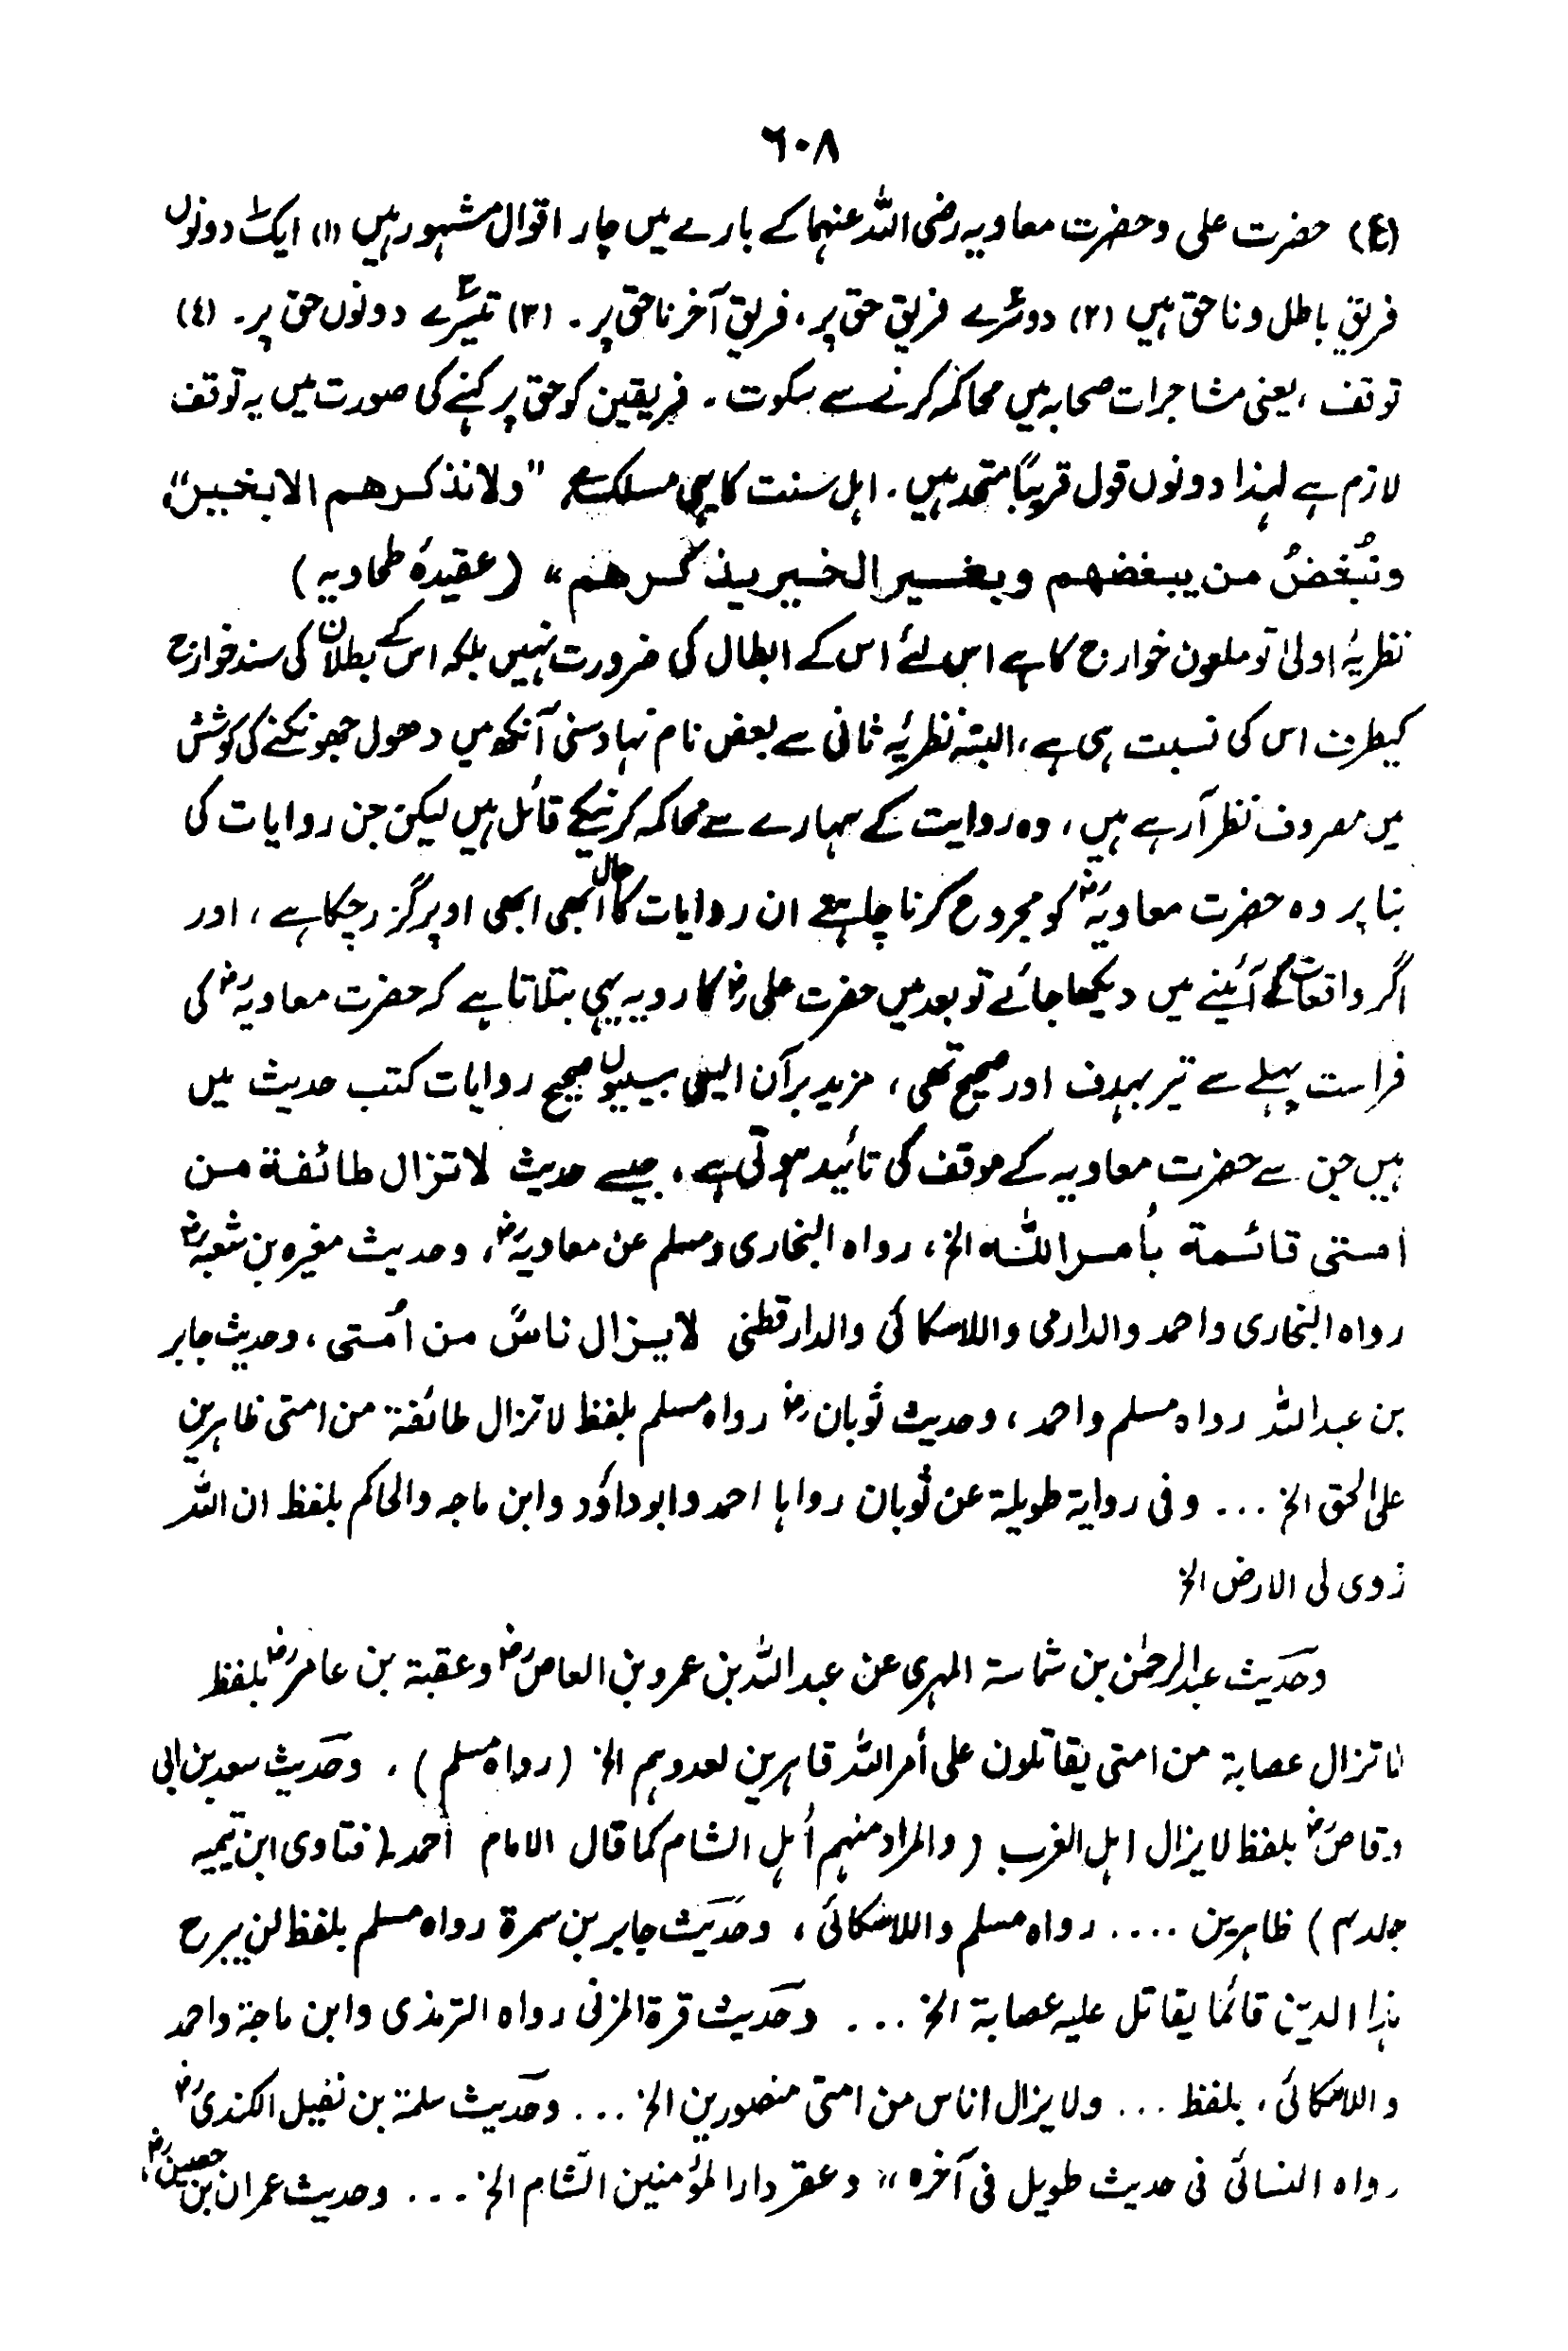 ٦٠٨
(٤) حضرت علی وحضرت معاویہ رضی اللہ عنہما کے بارے میں چار اقوال مشہور ہیں (۱) ایک دونوں
فریق باطل و ناحق ہیں (۲) دوسرے فریق حق پر، فریق آخر ناحق پر۔ (۳) تیسرے دونوں حق پر۔ (٤)
توقف، یعنی مشاجرات صحابہ میں محاکمہ کرنے سے سکوت۔ فریقین کو حق پر کہنے کی صورت میں یہ توقف
لازم ہے لہذا دونوں قول قریباً متحد ہیں۔ اہل سنت کا یہی مسلک ہے "ولا نذکرهم الا بخیر"،
ونُبْغضُ من یبغضهم وبغیر الخیر یذکرهم" (عقیدۂ طحاویہ)
نظریۂ اولیٰ تو ملعون خوارج کا ہے اس لئے اس کے ابطال کی ضرورت نہیں بلکہ اس کے بطلان کی سند خوارج
کیطرف اس کی نسبت ہی ہے، البتہ نظریۂ ثانی سے بعض نام نہاد سنی آنکھ میں دھول جھونکنے کی کوشش
میں مصروف نظر آرہے ہیں، وہ روایت کے سہارے سے محاکمہ کرنیکے قائل ہیں لیکن جن روایات کی
بنا پر وہ حضرت معاویہؓ کو مجروح کرنا چاہتے ان روایات کا حال ابھی ابھی اوپر گزر چکا ہے، اور
اگر واقعات کے آئینے میں دیکھا جائے تو بعد میں حضرت علیؓ کا رویہ یہی بتلاتا ہے کہ حضرت معاویہؓ کی
فراست پہلے سے تیر بہدف اور صحیح تھی، مزید برآن ایسی بیسیوں صحیح روایات کتب حدیث میں
ہیں جن سے حضرت معاویہ کے موقف کی تائید ہوتی ہے، جیسے حدیث لا تزال طائفة من
امتی قائمة بأمر اللہ الخ، رواہ البخاری ومسلم عن معاویہؓ، وحدیث مغیرہ بن شعبہؓ
رواہ البخاری واحمد والدارمی واللالکائی والدارقطنی لا یزال ناسٌ من اُمتی، وحدیث جابر
بن عبداللہ رواہ مسلم واحمد، وحدیث ثوبانؓ رواہ مسلم بلفظ لا تزال طائفة من امتی ظاہرین
علی الحق الخ ... وفی روایة طویلة عن ثوبان رواہا احمد وابوداؤد وابن ماجہ والحاکم بلفظ ان اللہ
زوی لی الارض الخ
وحدیث عبدالرحمٰن بن شماسة المہری عن عبداللہ بن عمرو بن العاصؓ وعقبة بن عامرؓ بلفظ
لا تزال عصابة من امتی یقاتلون علی أمر اللہ قاہرین لعدوہم الخ (رواہ مسلم)، وحدیث سعد بن ابی
وقاصؓ بلفظ لا یزال اہل الغرب (والمراد منہم أہل الشام کما قال الامام أحمد (فتاوی ابن تیمیہ
جلد ٤) ظاہرین .... رواہ مسلم واللالکائی، وحدیث جابر بن سمرة رواہ مسلم بلفظ لن یبرح
ہذا الدین قائما یقاتل علیہ عصابة الخ ... وحدیث قرة المزنی رواہ الترمذی وابن ماجة واحمد
واللالکائی، بلفظ ... ولا یزال اناس من امتی منصورین الخ ... وحدیث سلمة بن نفیل الکندیؓ
رواہ النسائی فی حدیث طویل فی آخرہ" وعقر دار المؤمنین الشام الخ ... وحدیث عمران بن حصینؓ،